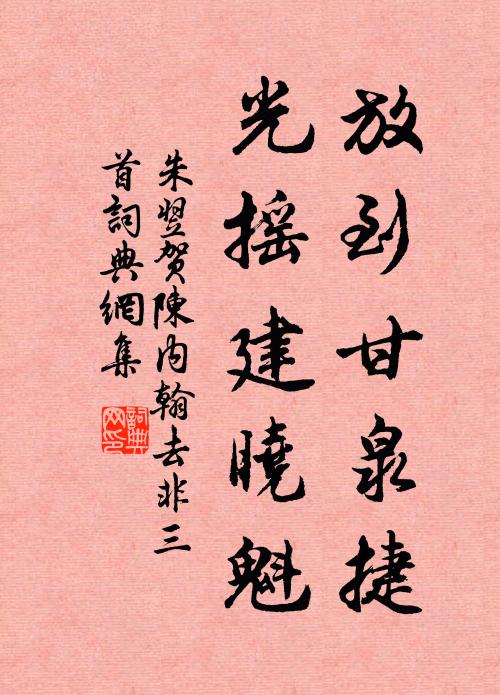 放到甘泉捷
光摇建曉魁
朱翌贺陳內翰去非三
首詞典網集
詞典
网印